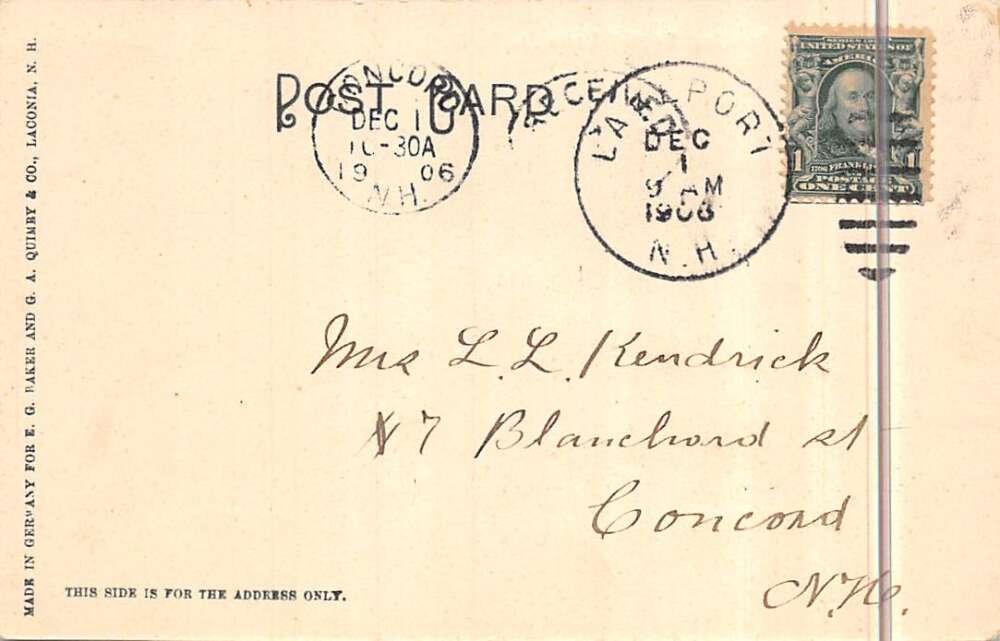 POST CARD
CONCORD
DEC 1
10-30A
1906
N.H.
RECEIVED
LAKEPORT
DEC
1
9 AM
1906
N.H.
SERIES 1902
UNITED STATES OF
AMERICA
1 1
FRANKLIN
POSTAGE
ONE CENT
Mrs L. L. Kendrick
7 Blanchard st
Concord
N.H.
THIS SIDE IS FOR THE ADDRESS ONLY.
MADE IN GERMANY FOR E. G. BAKER AND G. A. QUIMBY & CO., LACONIA, N. H.